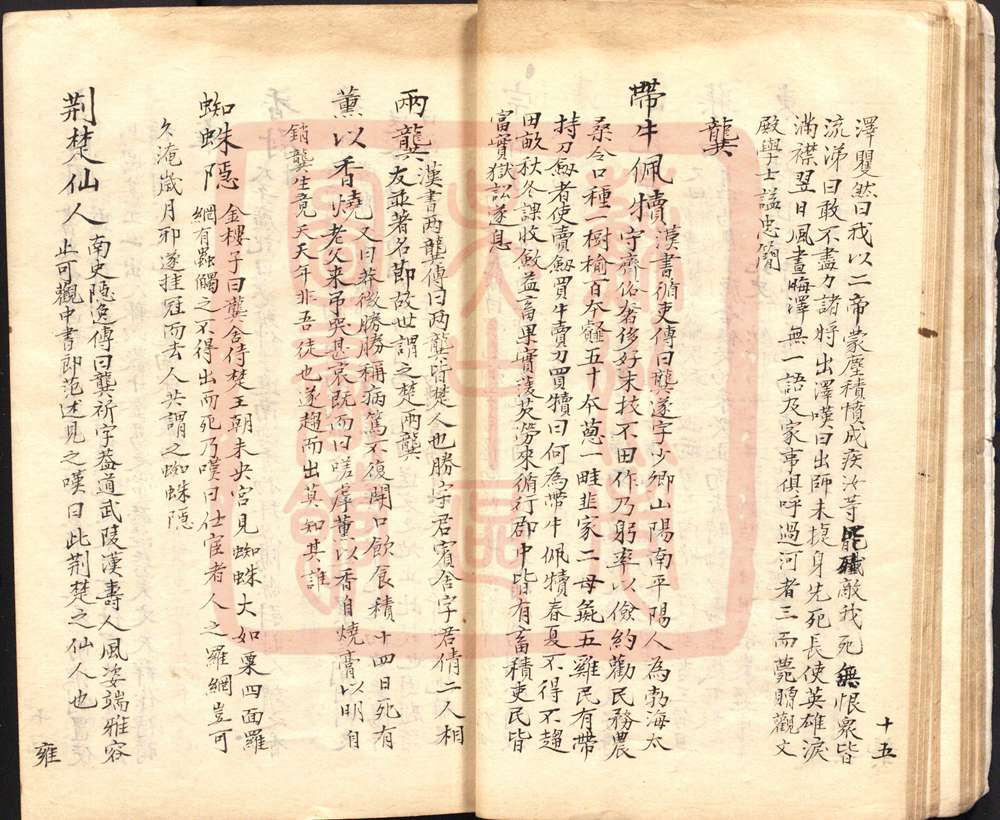 澤矍然曰我以二帝蒙塵積憤成疾汝等能殲敵我死無恨衆皆
流涕曰敢不盡力諸將出澤嘆曰出師未捷身先死長使英雄淚
滿襟翌日風晝晦澤無一語及家事俱呼過河者三而薨贈觀文
殿學士謚忠簡
龔
帶牛佩犢 漢書循吏傳曰龔遂字少卿山陽南平陽人為勃海太
守齊俗奢侈好末技不田作乃躬率以儉約勸民務農
桑令口種一樹榆百本䪥五十本葱一畦韭家二母彘五雞民有帶
持刀劔者使賣劔買牛賣刀買犢曰何為帶牛佩犢春夏不得不趨
田畝秋冬課收斂益畜果實蔆芡勞來循行郡中皆有畜積吏民皆
富實獄訟遂息
兩龔 漢書两龔傳曰两龔皆楚人也勝字君賓舍字君倩二人相
友並著名節故世謂之楚两龔
薰以香燒 又曰莽徵勝勝稱病篤不復開口飲食積十四日死有
老父來弔哭甚哀既而曰嗟虖薰以香自燒膏以明自
銷龔生竟夭天年非吾徒也遂趨而出莫知其誰
蜘蛛隱 金樓子曰龔舍侍楚王朝未央宮見蜘蛛大如粟四面羅
網有蟲觸之不得出而死乃嘆曰仕宦者人之羅網豈可
久淹歲月邪遂挂冠而去人共謂之蜘蛛隱
荆楚仙人 南史隱逸傳曰龔祈字葢道武陵漢壽人風姿端雅容
止可觀中書郎范述見之嘆曰此荆楚之仙人也
十五
雍